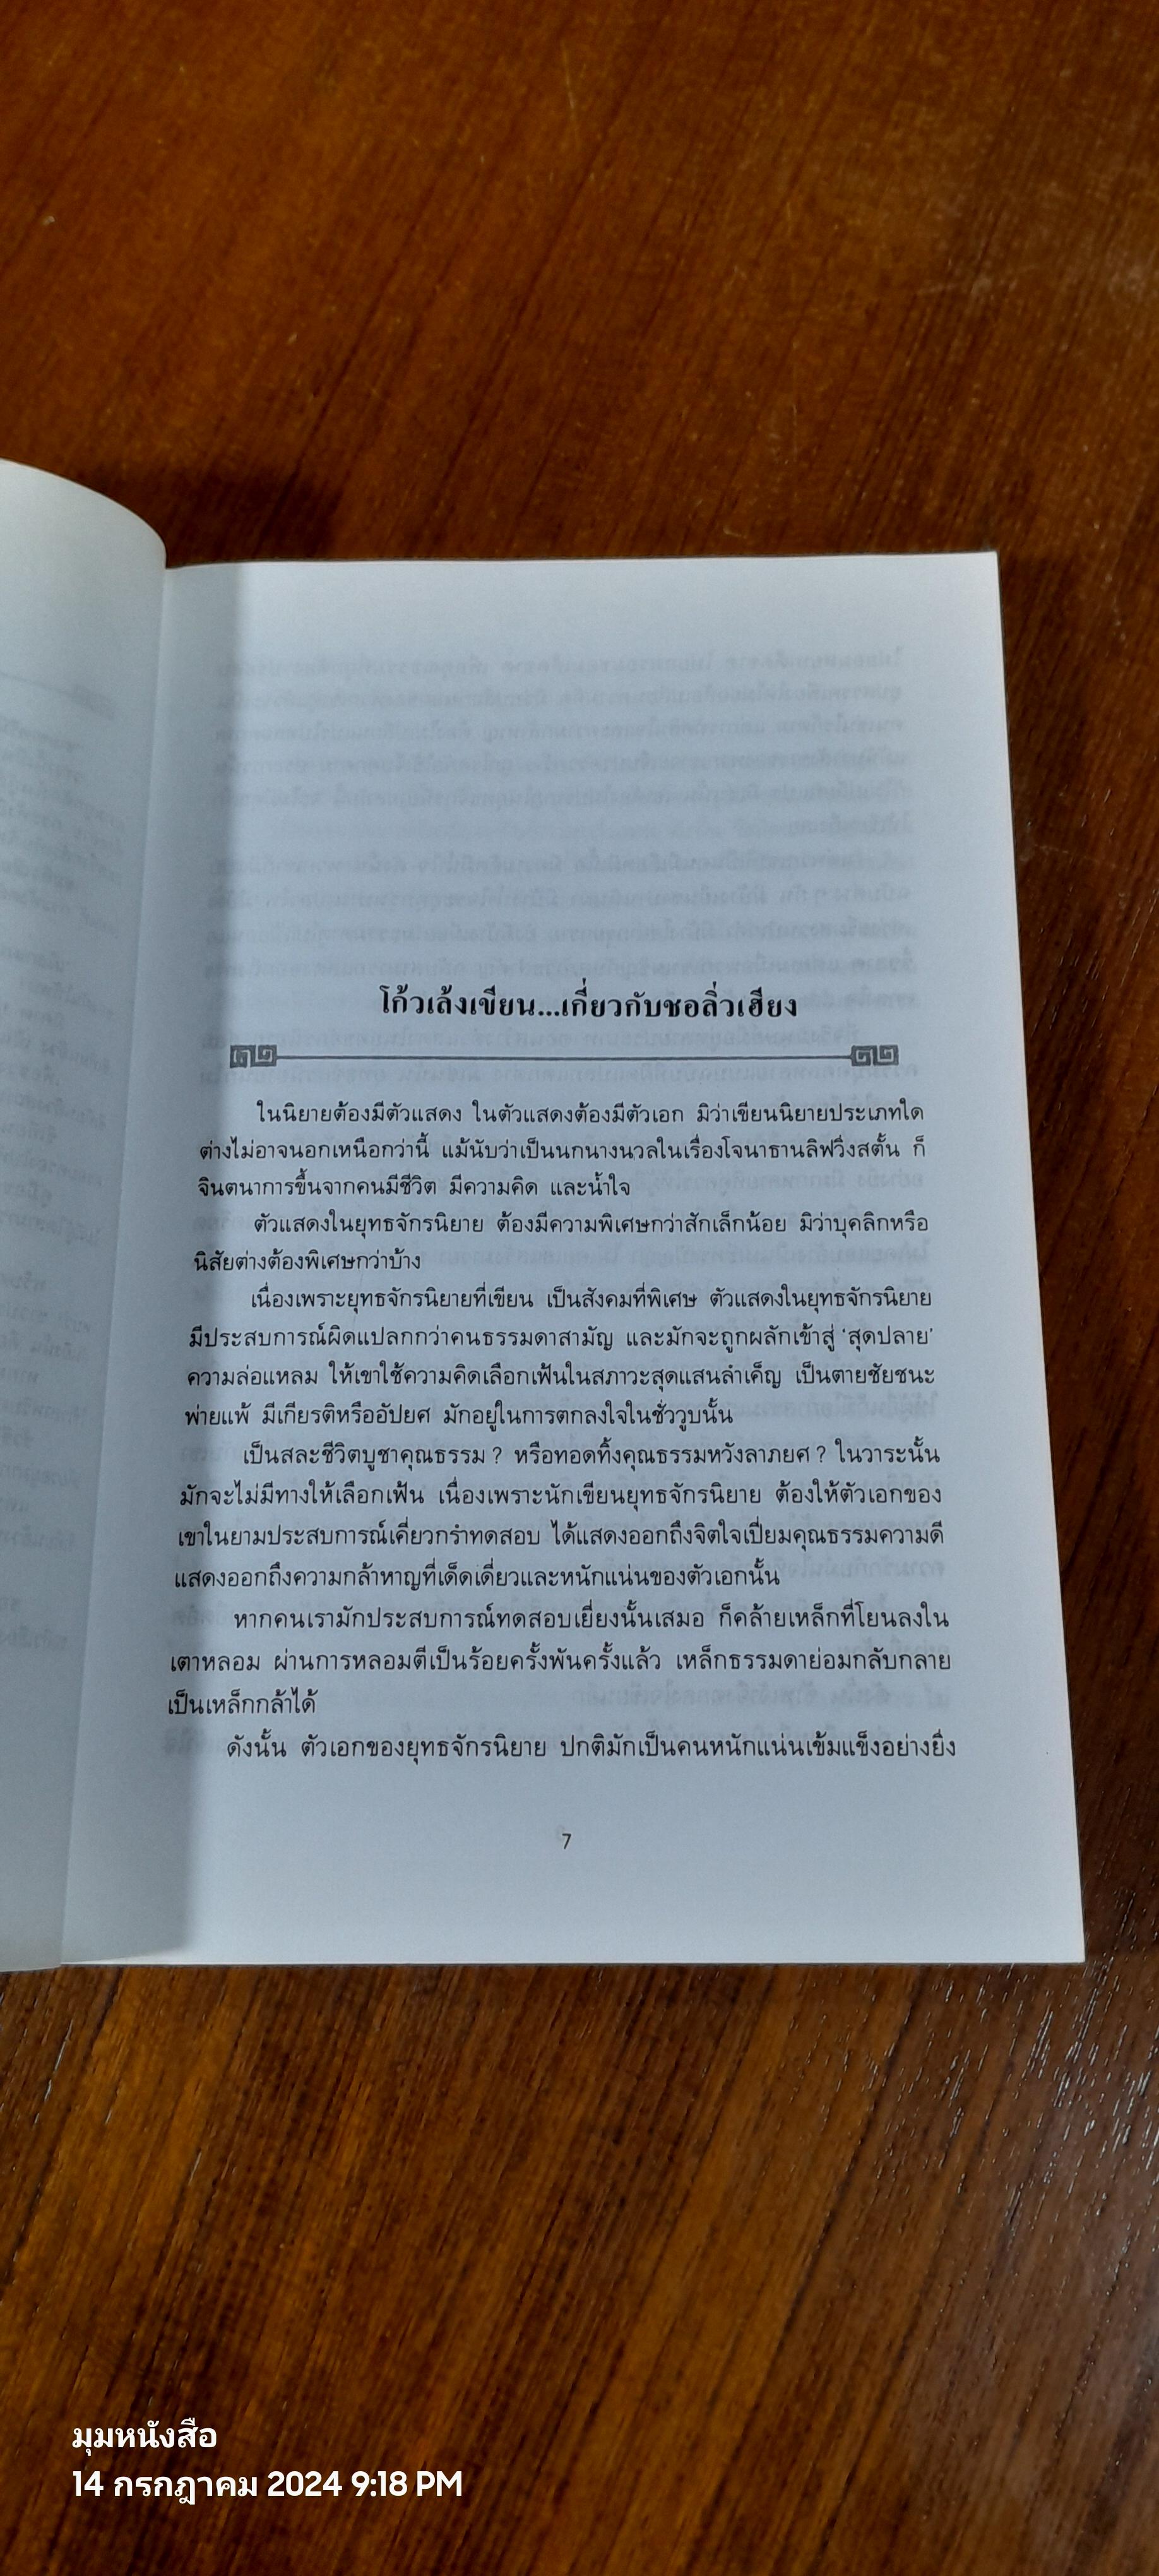 โก้วเล้งเขียน...เกี่ยวกับชอลิ่วเฮียง
ในนิยายต้องมีตัวแสดง ในตัวแสดงต้องมีตัวเอก มิว่าเขียนนิยายประเภทใด
ต่างไม่อาจนอกเหนือกว่านี้ แม้นับว่าเป็นนกนางนวลในเรื่องโจนาธานลิฟวิ่งสตั้น ก็
จินตนาการขึ้นจากคนมีชีวิต มีความคิด และน้ำใจ
ตัวแสดงในยุทธจักรนิยาย ต้องมีความพิเศษกว่าสักเล็กน้อย มิว่าบุคลิกหรือ
นิสัยต่างต้องพิเศษกว่าบ้าง
เนื่องเพราะยุทธจักรนิยายที่เขียน เป็นสังคมที่พิเศษ ตัวแสดงในยุทธจักรนิยาย
มีประสบการณ์ผิดแปลกกว่าคนธรรมดาสามัญ และมักจะถูกผลักเข้าสู่ 'สุดปลาย'
ความล่อแหลม ให้เขาใช้ความคิดเลือกเฟ้นในสภาวะสุดแสนลำเค็ญ เป็นตายชัยชนะ
พ่ายแพ้ มีเกียรติหรืออัปยศ มักอยู่ในการตกลงใจในชั่ววูบนั้น
เป็นสละชีวิตบูชาคุณธรรม ? หรือทอดทิ้งคุณธรรมหวังลาภยศ ? ในวาระนั้น
มักจะไม่มีทางให้เลือกเฟ้น เนื่องเพราะนักเขียนยุทธจักรนิยาย ต้องให้ตัวเอกของ
เขาในยามประสบการณ์เคี่ยวกรำทดสอบ ได้แสดงออกถึงจิตใจเปี่ยมคุณธรรมความดี
แสดงออกถึงความกล้าหาญที่เด็ดเดี่ยวและหนักแน่นของตัวเอกนั้น
หากคนเรามักประสบการณ์ทดสอบเยี่ยงนั้นเสมอ ก็คล้ายเหล็กที่โยนลงใน
เตาหลอม ผ่านการหลอมตีเป็นร้อยครั้งพันครั้งแล้ว เหล็กธรรมดาย่อมกลับกลาย
เป็นเหล็กกล้าได้
ดังนั้น ตัวเอกของยุทธจักรนิยาย ปกติมักเป็นคนหนักแน่นเข้มแข็งอย่างยิ่ง
7
มุมหนังสือ
14 กรกฎาคม 2024 9:18 PM